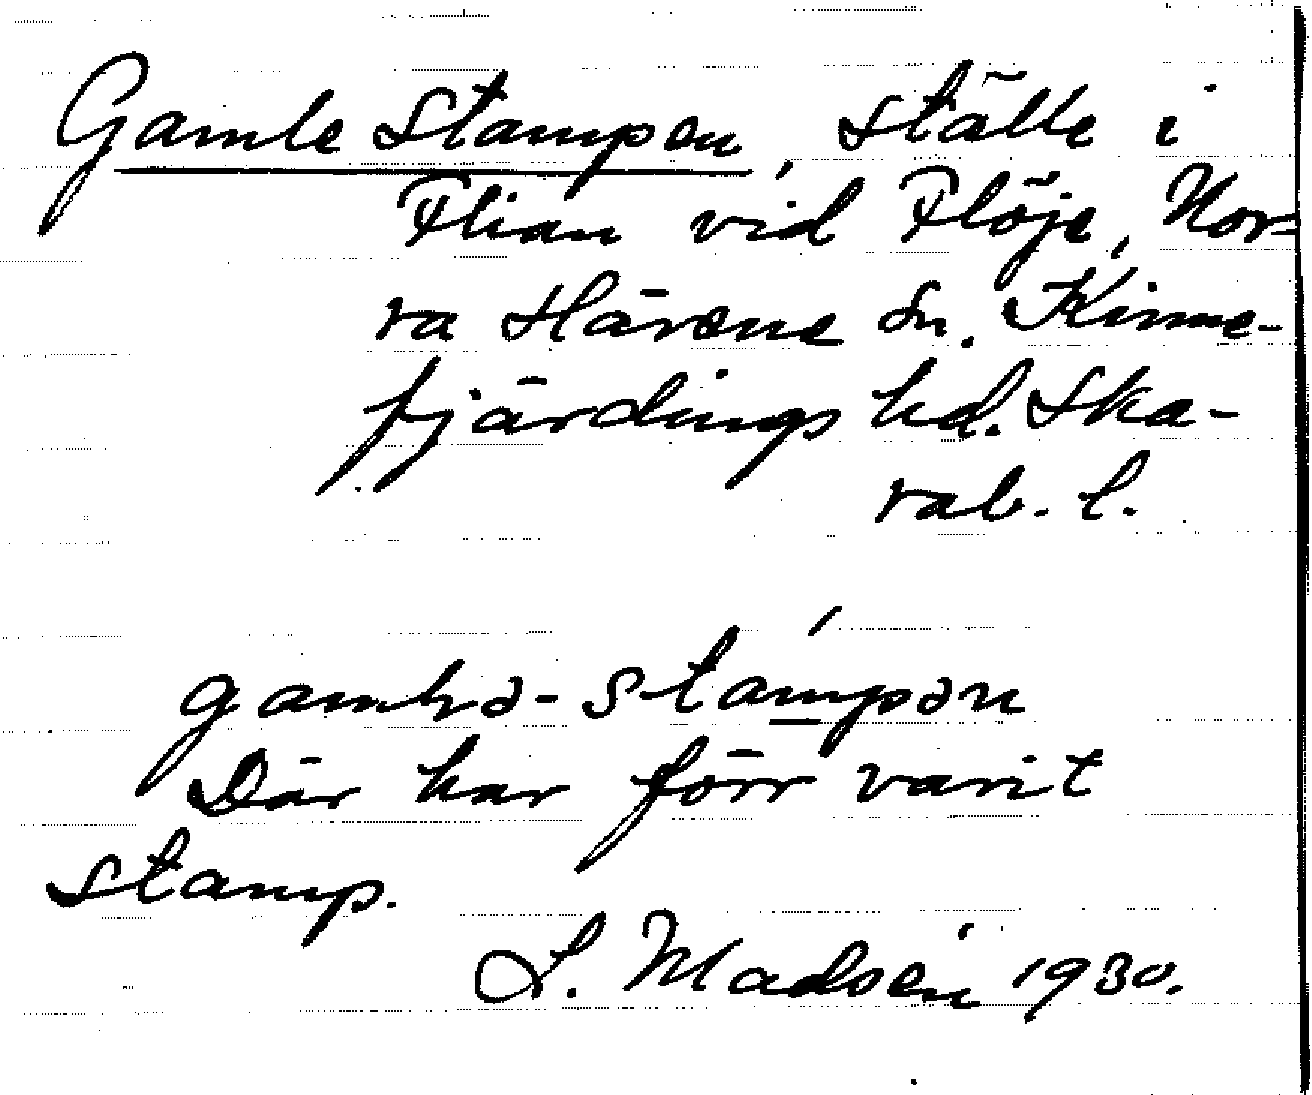 Gamle Stampen, ställe i
Flian vid Flöje, Nor-
ra Härene sn. Kinne-
fjärdings hd. Ska-
rab. l.
gamlə-stampən
Där har förr varit
stamp.
L. Madsén 1930.